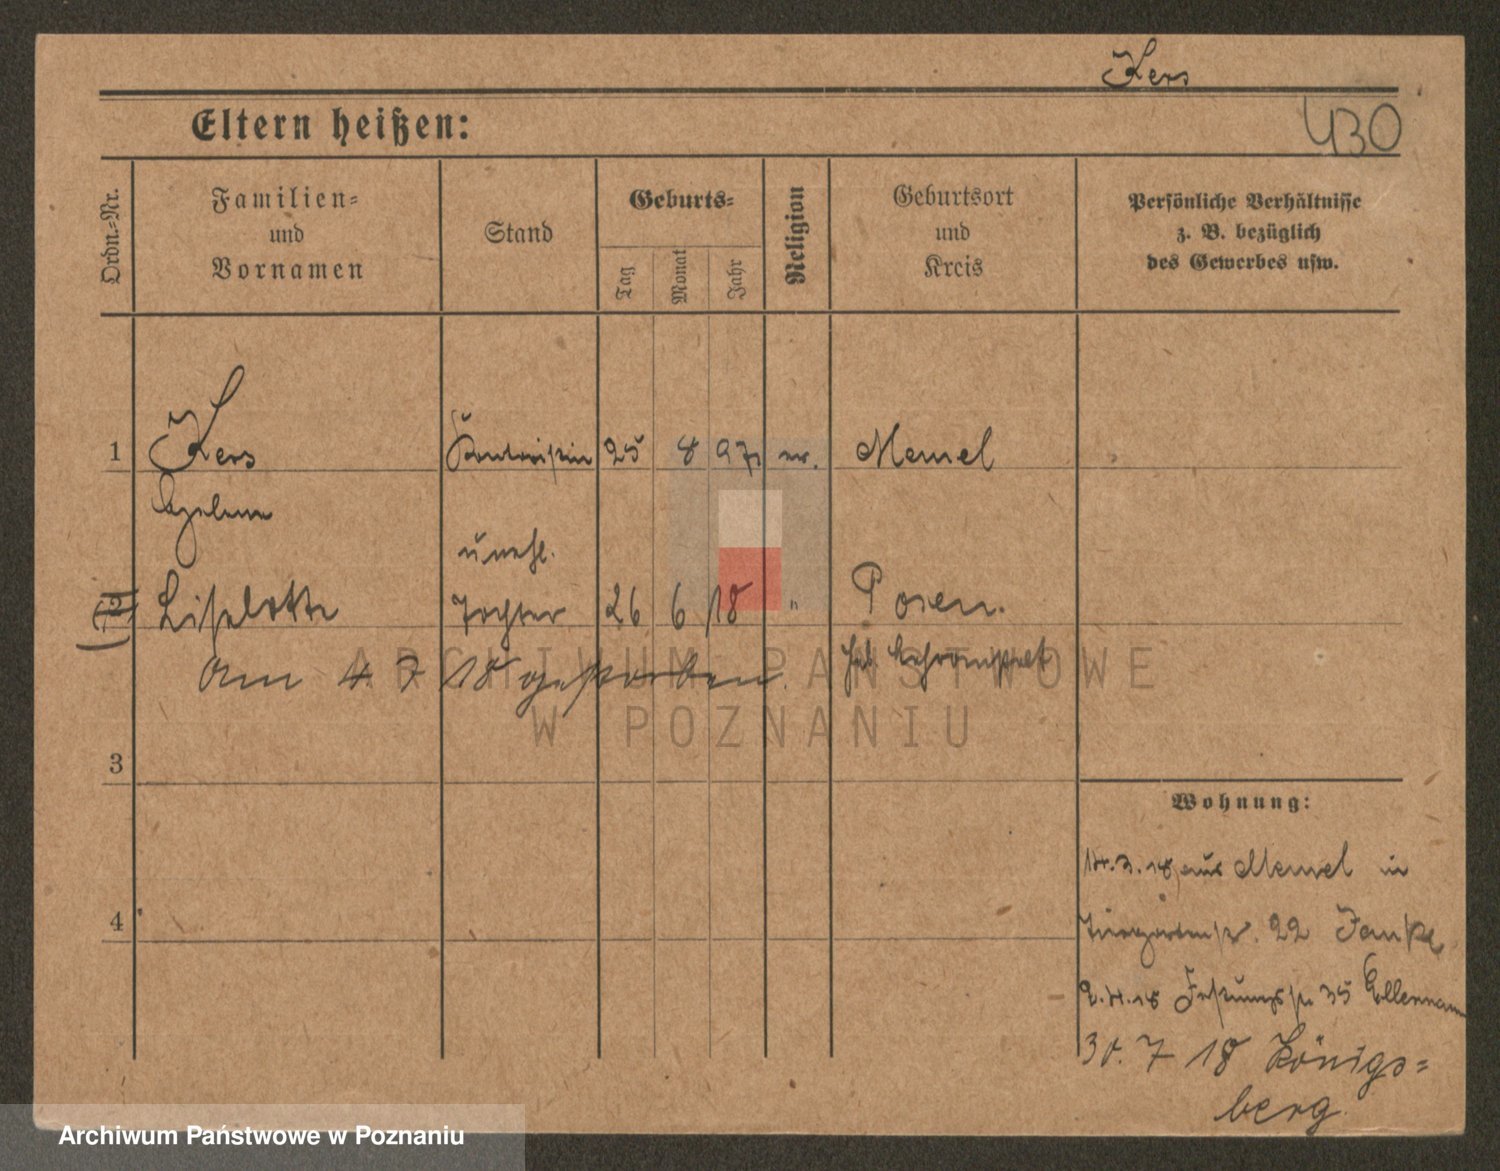 Kers
430
Eltern heißen:
Ordn.-Nr.
Familien-
und
Vornamen
Stand
Geburts-
Tag
Monat
Jahr
Religion
Geburtsort
und
Kreis
Persönliche Verhältnisse
z. B. bezüglich
des Gewerbes usw.
1
Kers
Kontoristin
25
8
97
ev.
Memel
unehl.
2
Liselotte
Tochter
26
6
18
"
Posen.
am 4 7 18 gestorben.
3
4
Wohnung:
14.3.18 aus Memel in
Tiergartenstr. 22 Janke
2.4.18 Festungsstr 35 Ellermann
30. 7 18 Königs-
berg
ARCHIWUM PAŃSTWOWE
W POZNANIU
Archiwum Państwowe w Poznaniu